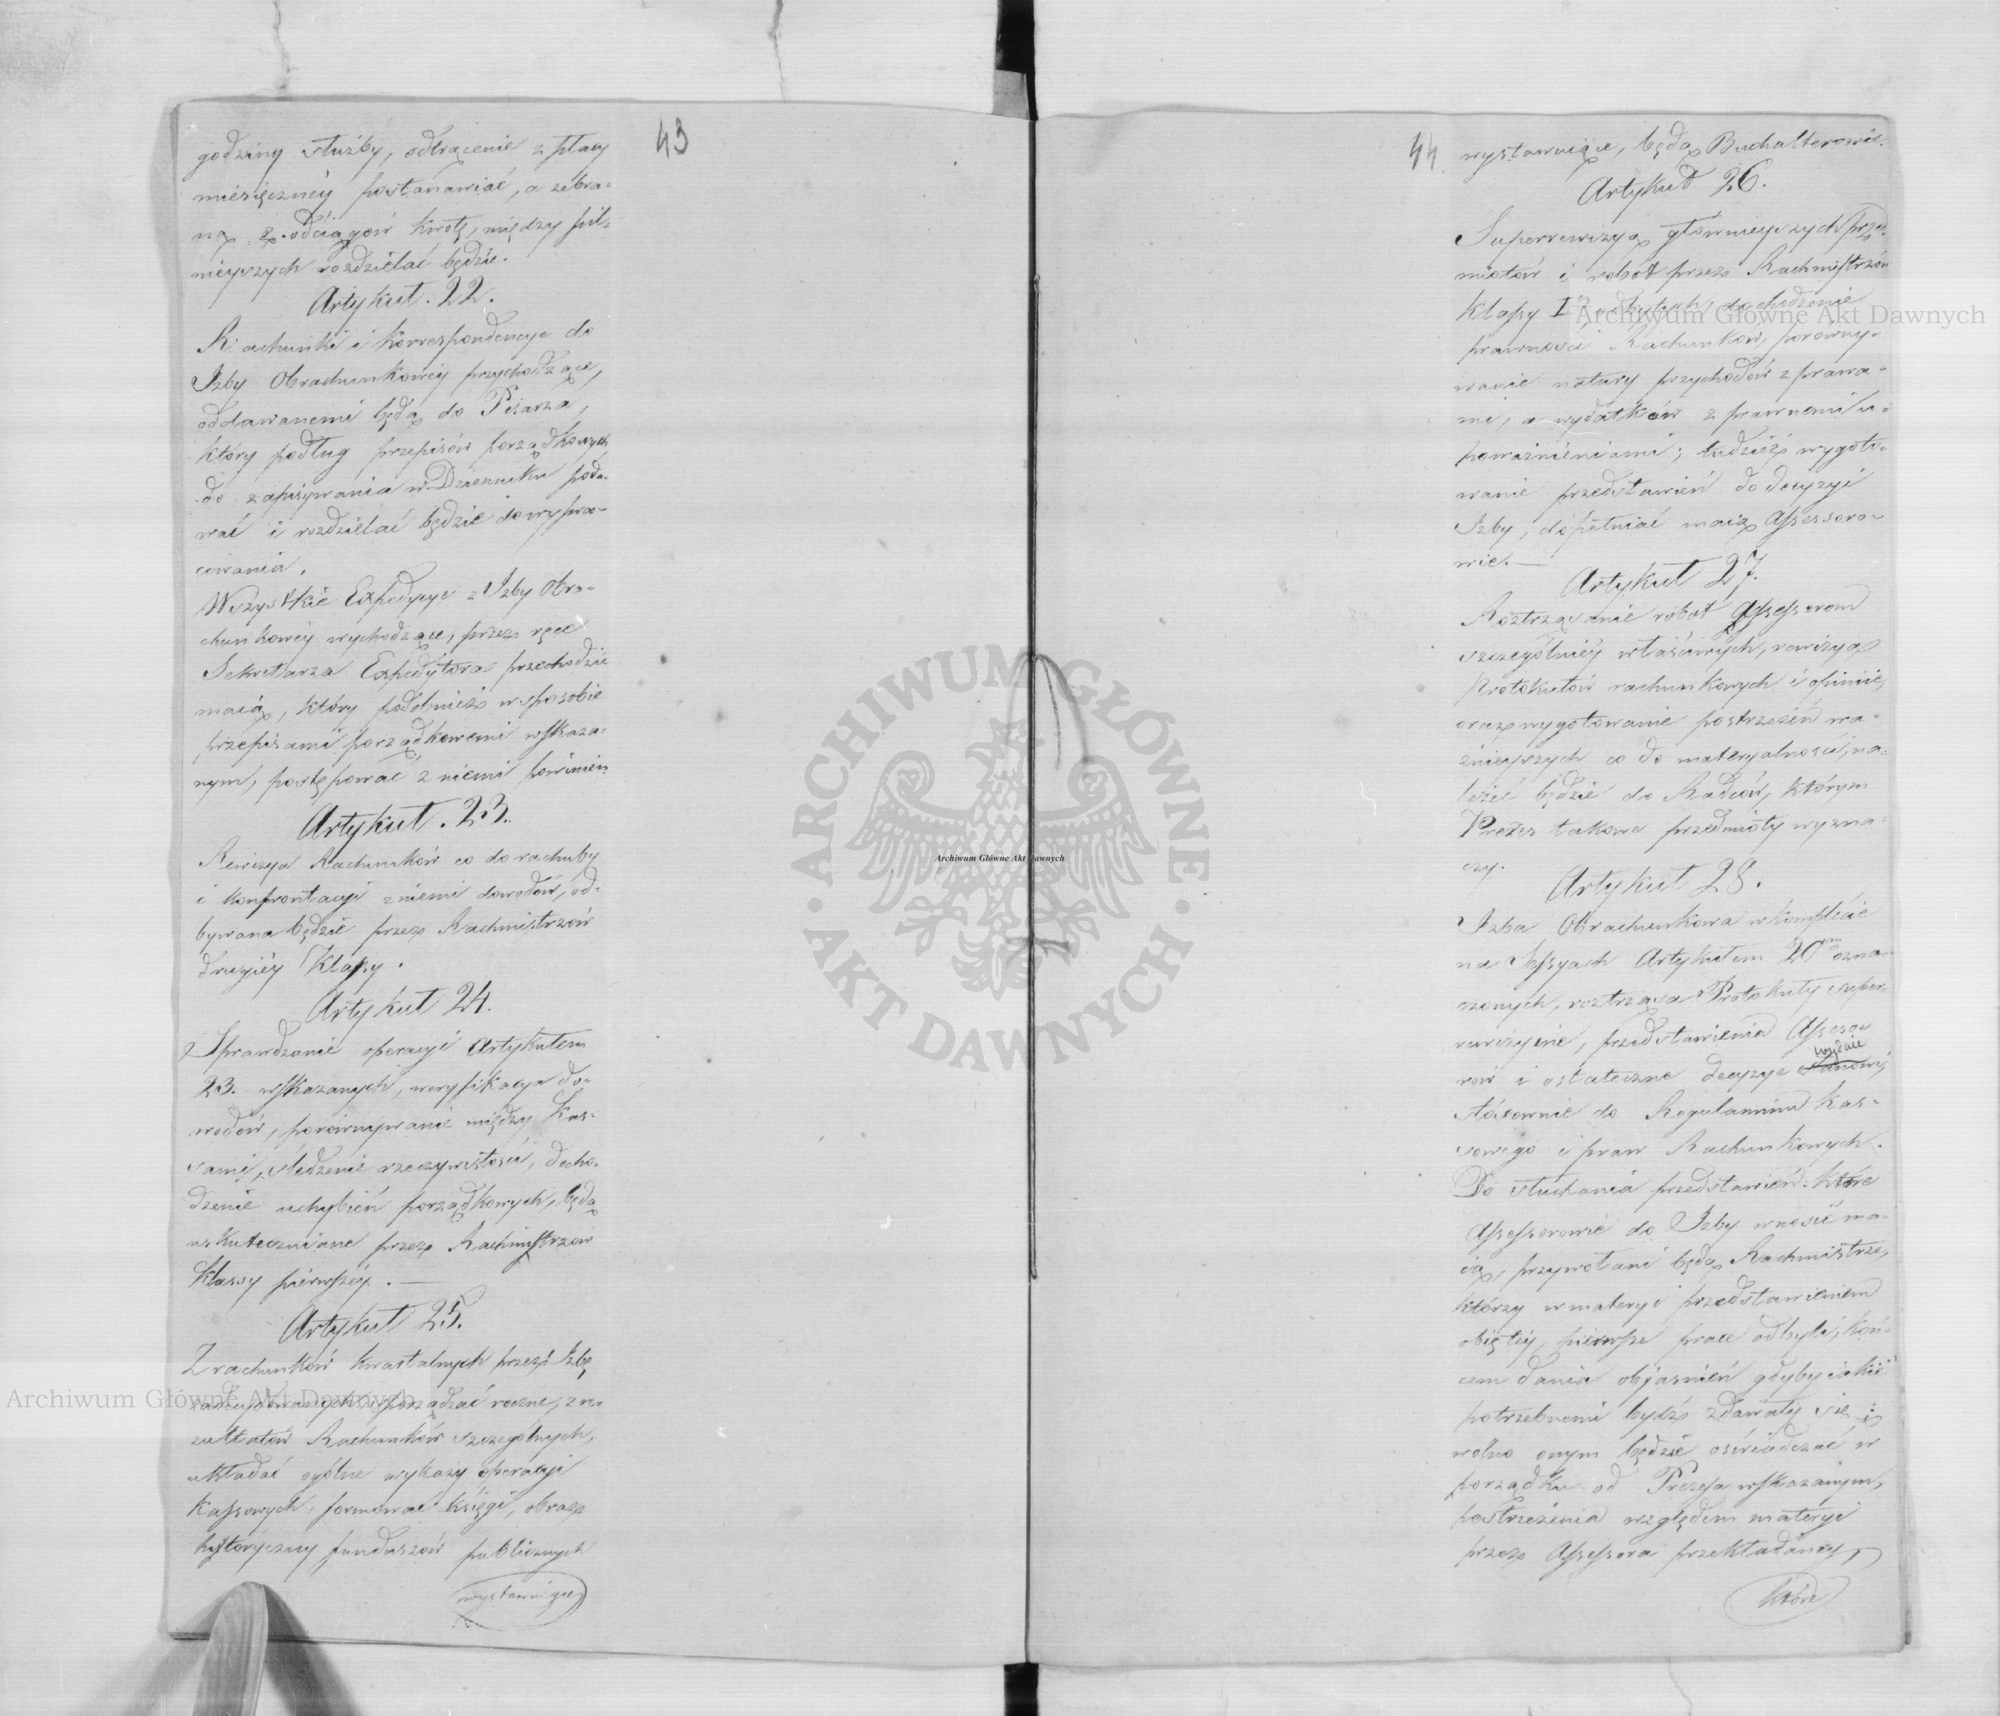 43
godziny służby, odtrącenie z płacy
miesięczney postanawiać, a zebra-
ną z odciągów kwotę, między pil-
nieyszych rozdzielać będzie.
Artykuł. 22.
Rachunki i korrespondencye do
Izby Obrachunkowey przychodzące,
oddawanemi będą do Pisarza,
który podług przepisów porządkowych
do zapisywania w Dzienniku poda-
wać i rozdzielać będzie do wypra-
cowania.
Wszystkie Expedycye z Izby Obra-
chunkowey wychodzące, przez ręce
Sekretarza Expedytora przechodzić
maią, który podobnież w sposobie
przepisami porządkowemi wskaza-
nym, postępować z niemi powinien
Artykuł. 23.
Rewizya Rachunków co do rachuby
i konfrontacyi z niemi dowodów, od-
bywana będzie przez Rachmistrzów
drugiéy Klassy.
Artykuł 24.
Sprawdzanie operacyi Artykułem
23. wskazanych, weryfikacya do-
wodów, porównywanie między Kas-
sami, śledzenie rzeczywistości, docho-
dzenie uchybień porządkowych, będą
uskuteczniane przez Rachmistrzów
Klassy pierwszéy. —
Artykuł 25.
Z rachunków kwartalnych przez Izbę
zadecydowanych sporządzać roczne, z re-
zultatów Rachunków szczególnych,
układać ogólne wykazy operacyi
Kassowych, formować księgi, obraz
historyczny funduszów publicznych
wystawuiące
44.
wystawuiące, będą Buchalterowie.
Artykuł 26.
Superrewizyą główneyszych przed-
miotów i robót przez Rachmistrzów
Klassy I odbytych, dochodzenie
prawności Rachunków, porówny-
wanie natury przychodów z prawa-
mi, a wydatków z prawnemi u-
poważnieniami; tudzież wygoto-
wanie przedstawień do decyzyi
Izby, dopełniać maią Assessoro-
wie. —
Artykuł 27.
Roztrząsanie robót Assessorom
szczególniey właściwych, rewizya
Protokułów rachunkowych i opinie,
oraz wygotowanie postrzeżeń wa-
żnieyszych co do materyalności, na-
leżeć będzie do Radców, którym
Prezes takowe przedmioty wyzna-
czy.
Artykuł 28.
Izba Obrachunkowa w komplecie
na Sessyach Artykułem 20m ozna-
czonych, roztrząsa Protokuły super-
rewizyine, przedstawienia Assesso-
wydaie
rów i ostateczne decyzye stanowi,
stósownie do Regulaminu Kas-
sowego i praw Rachunkowych.
Do słuchania przedstawień które
Assessorowie do Izby wnosić ma-
ią, przywołani będą Rachmistrze,
którzy w materyi przedstawieniem
obiętéy, pierwsze prace odbyli, koń-
cem dania objaśnień gdyby iakie
potrzebnemi bydź zdawały się; i
wolno onym będzie oświadczać w
porządku od Prezesa wskazanym,
postrzeżenia względem materyi
przez Assessora przekładaney,
które
Archiwum Główne Akt Dawnych
Archiwum Główne Akt Dawnych
Archiwum Główne Akt Dawnych
ARCHIWUM GŁÓWNE · AKT DAWNYCH ·